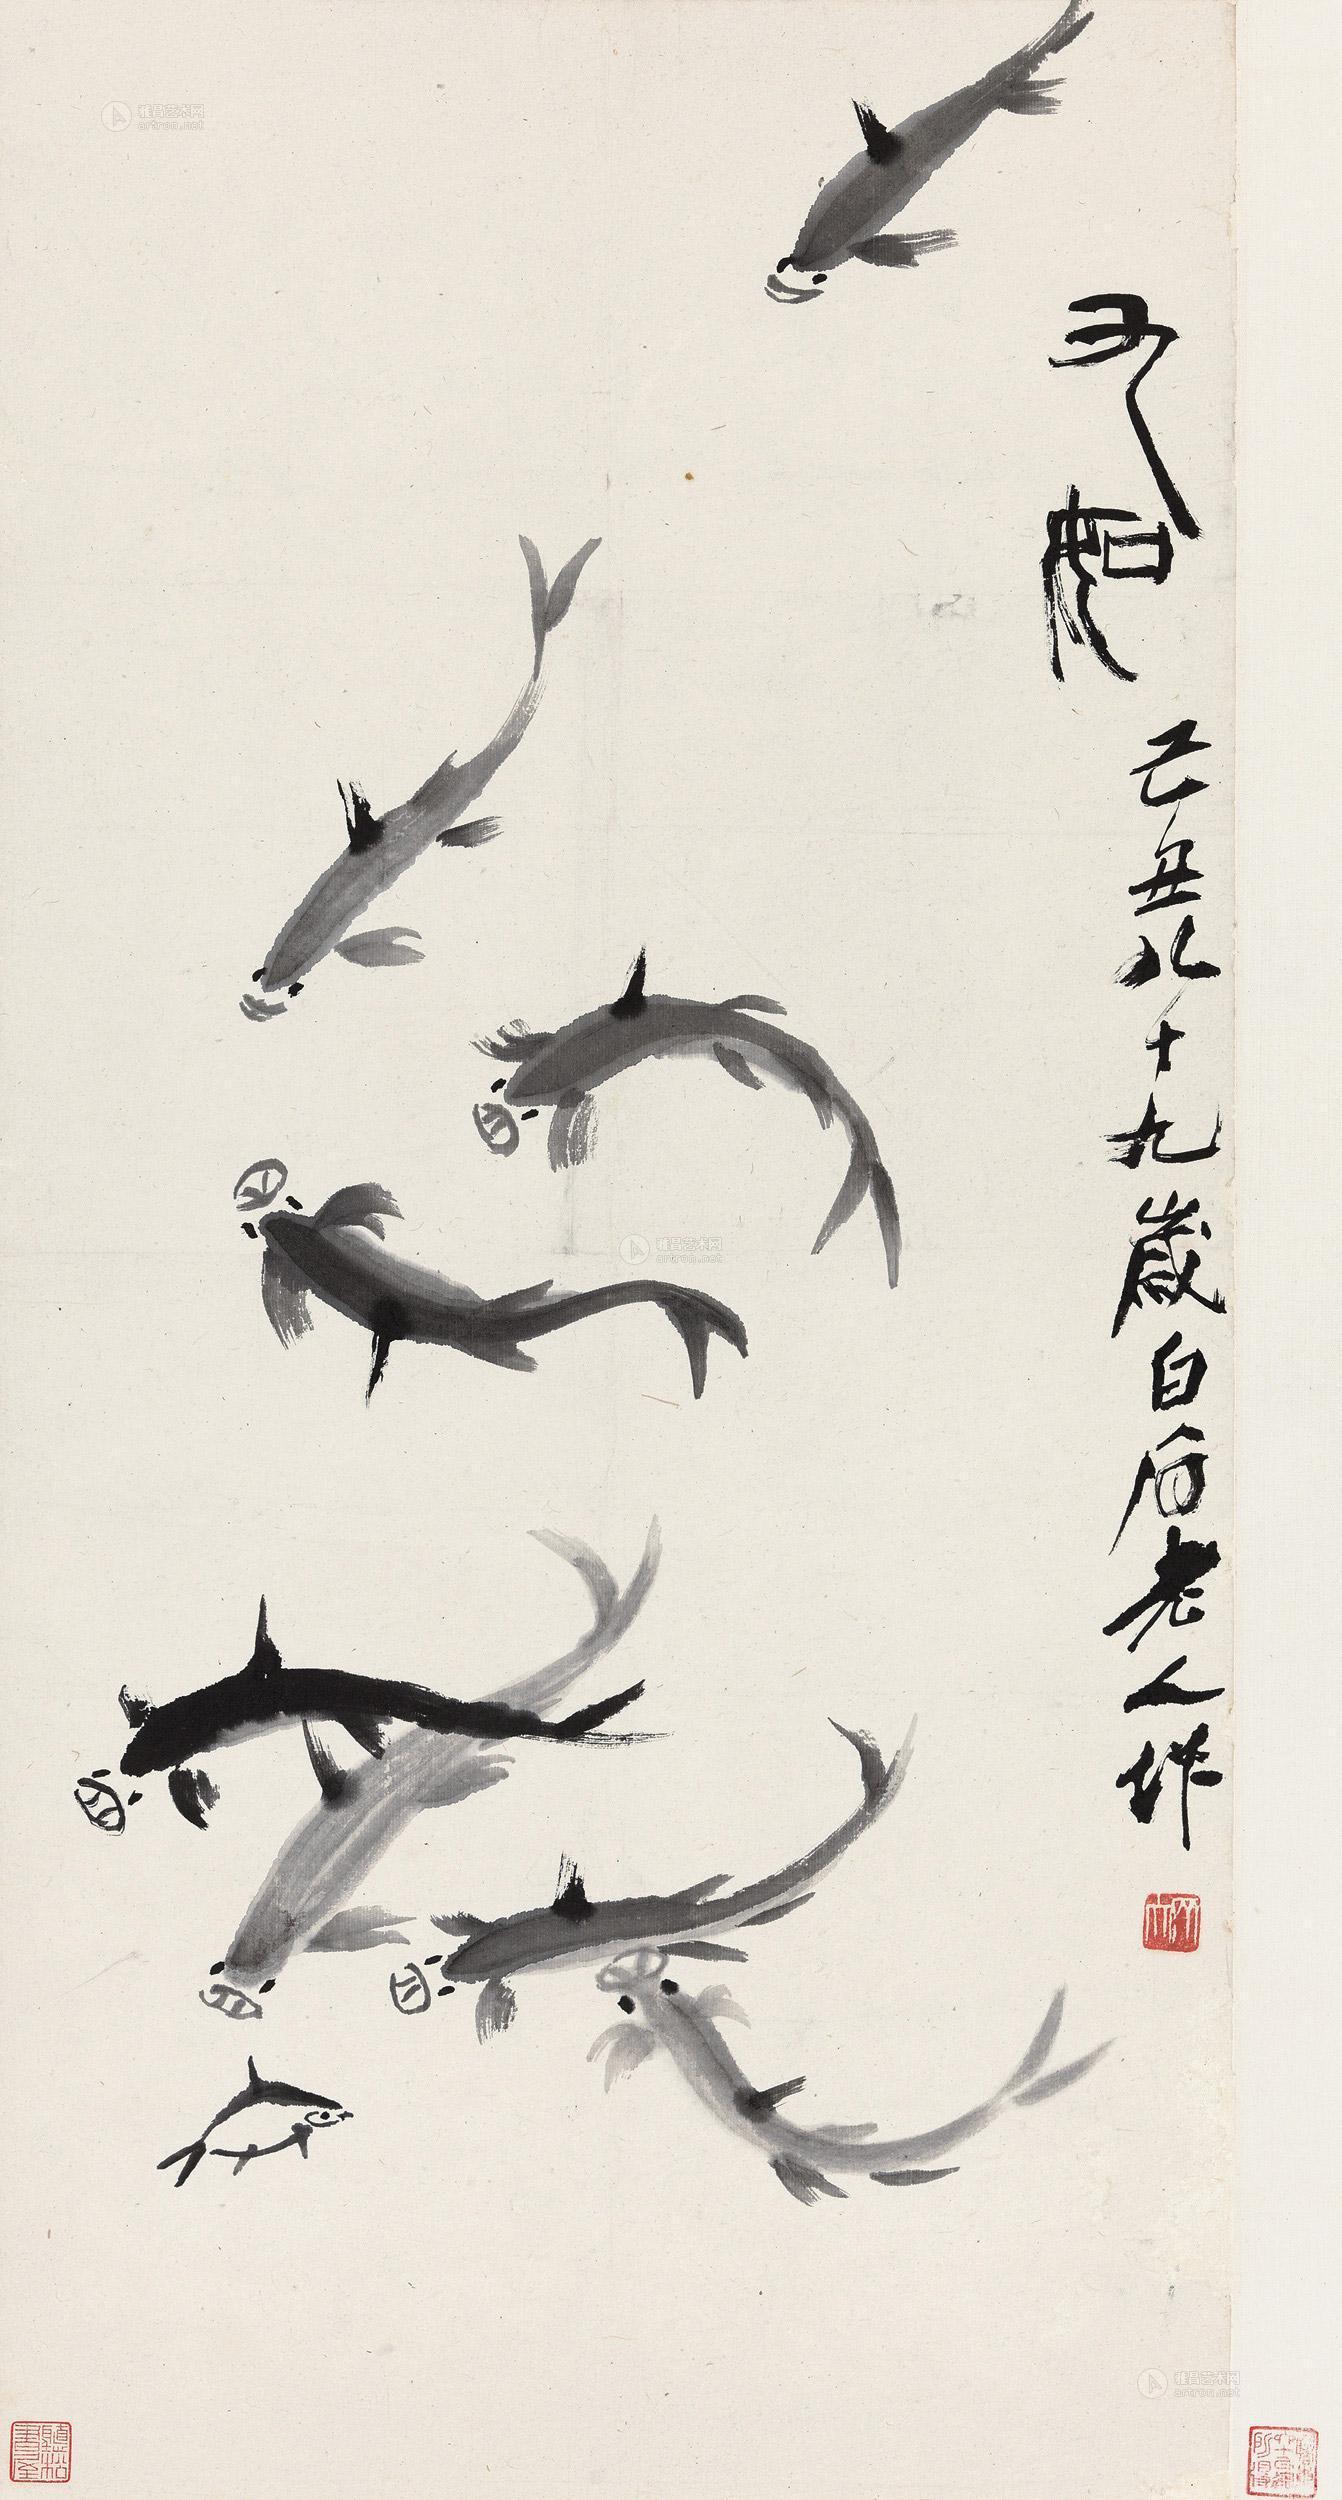 九如
己丑八十九歲白石老人作
雅昌艺术网
artron.net
雅昌艺术网
artron.net
雅昌艺术网
artron.net